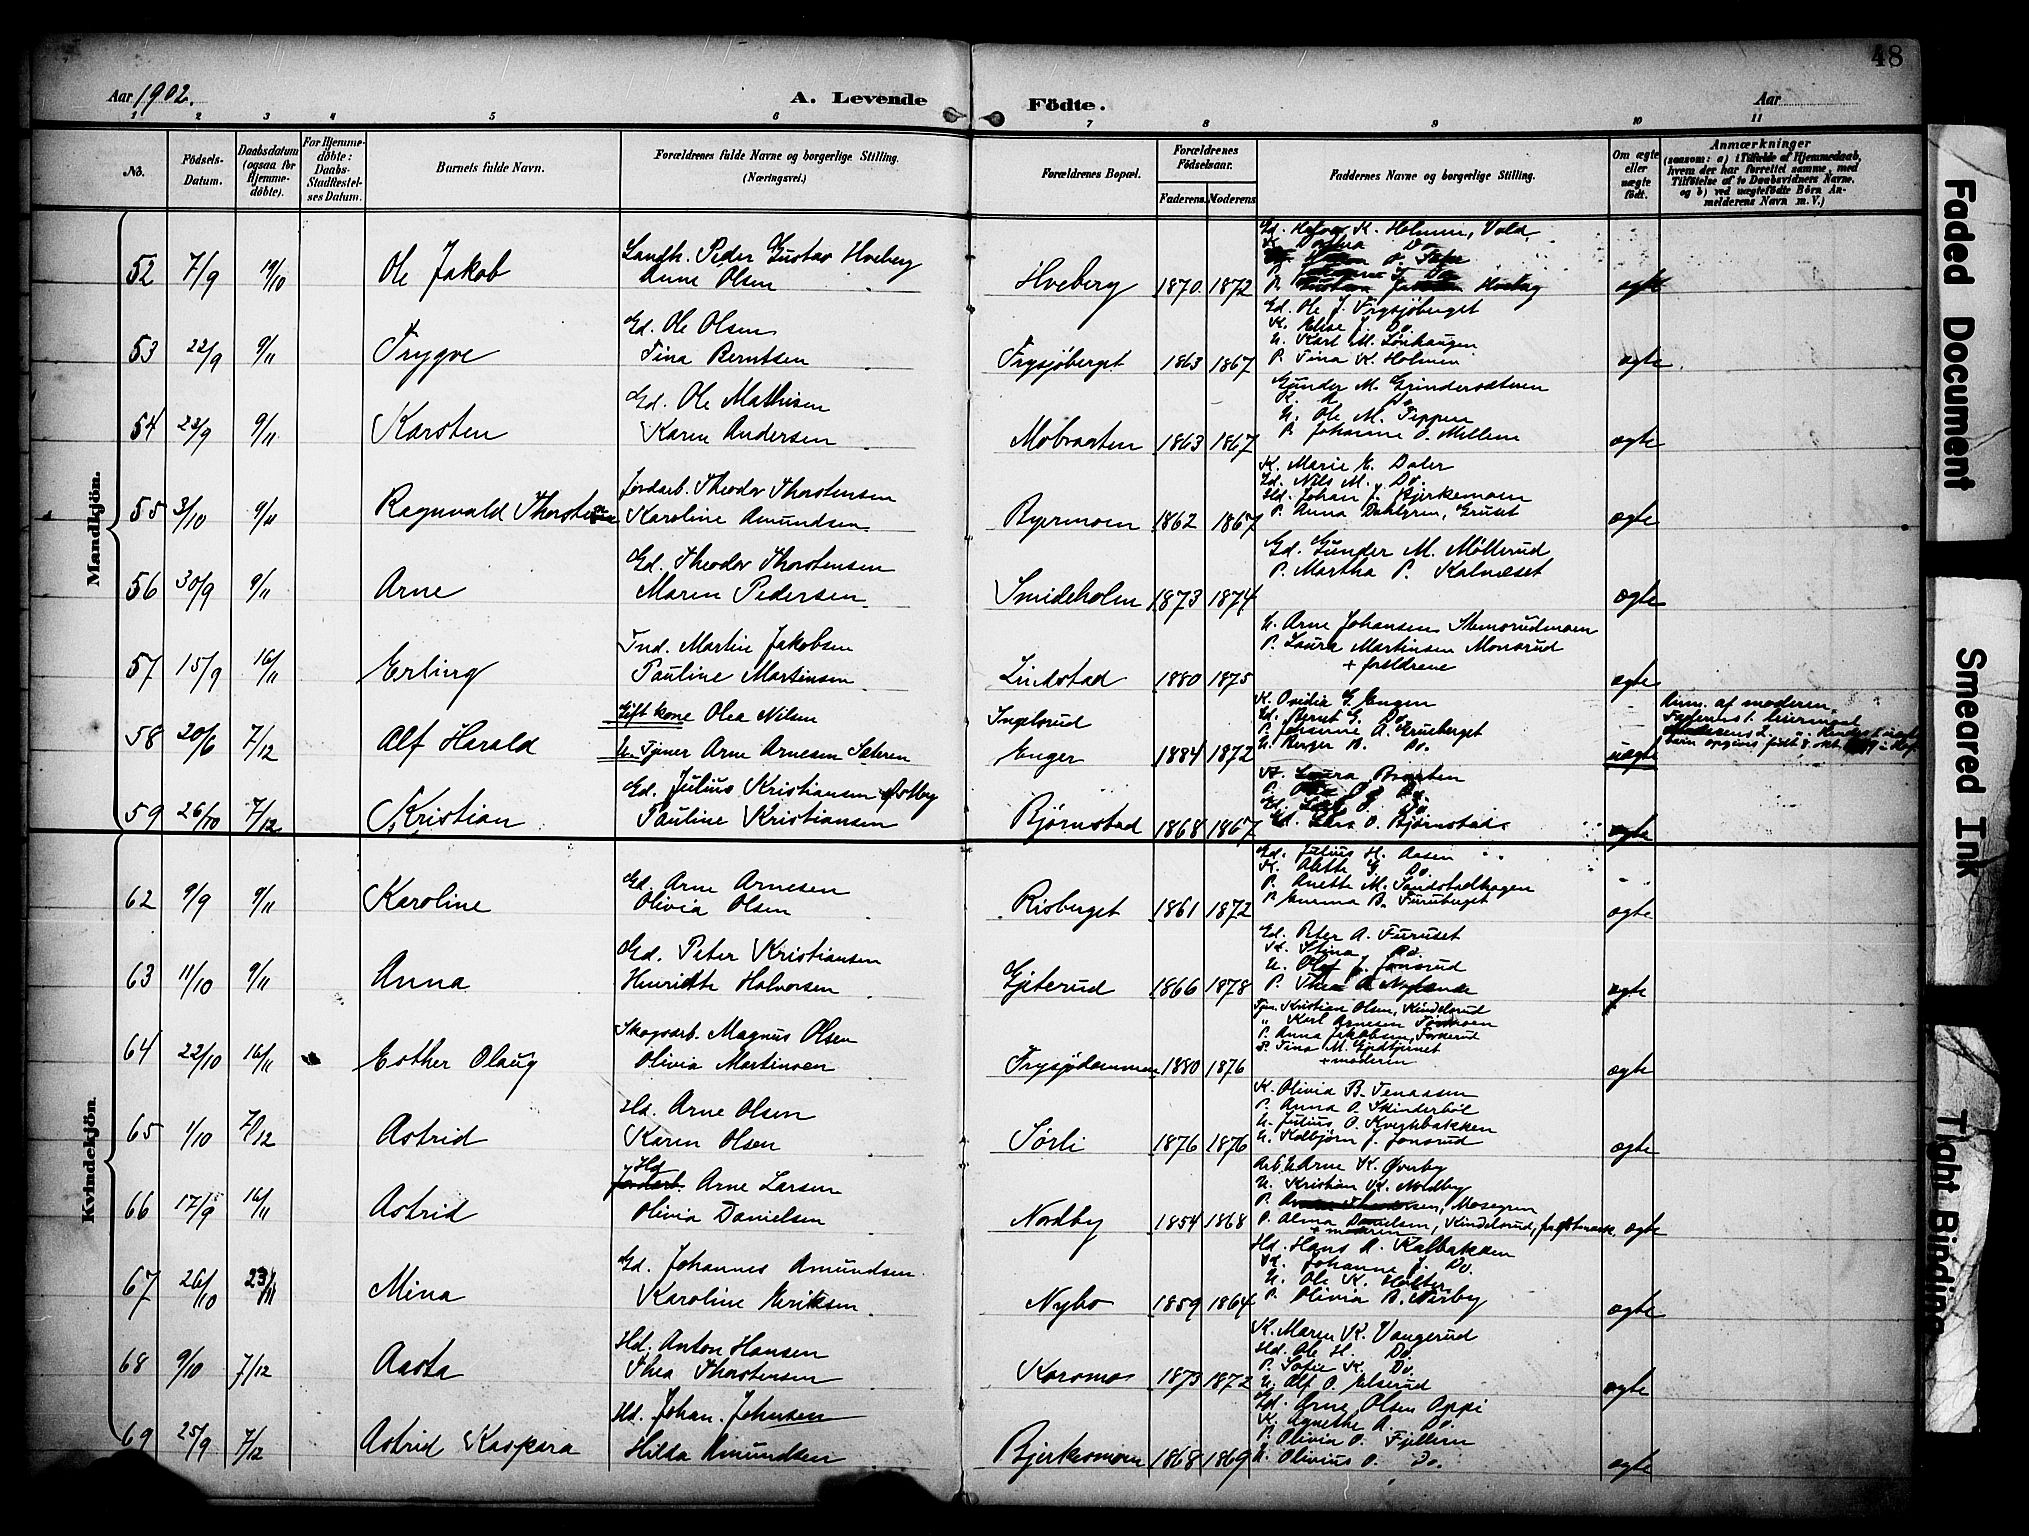 48
Aar 1902.
A. Levende Födte.
Aar
1 2 3 4 5 6 7 8 9 10 11
No.
Födsels-Datum.
Daabsdatum (ogsaa for Hjemme-döbte).
For Hjemme-döbte: Daabs-Stadfæstel-ses Datum.
Barnets fulde Navn.
Forældrenes fulde Navne og borgerlige Stilling. (Næringsvei.)
Forældrenes Bopæl.
Forældrenes Födselsaar.
Faderens. Moderens.
Faddernes Navne og borgerlige Stilling.
Om ægte eller uægte födt.
Anmærkninger
(saasom: a) i Tilfælde af Hjemmedaab, hvem der har forrettet samme, med Tilföielse af to Daabsvidners Navne, og b) ved uægtefödte Börn An-melderens Navn m. V.)
Mandkjön.
52 7/9 19/10 Ole Jakob
Landh. Peder Gustav Hveberg
Anne Olsen
Hveberg 1870 1872
K. Holmen, Vold
ægte
53 22/9 9/11 Trygve
Gd. Ole Olsen
Tina Berntsen
Frysjøberget 1863 1867
Gd. Ole J. Frysjøberget
K. Elise J. Do.
U. Karl M. Lønhaugen
P. Tina K. Holmen
ægte
54 22/9 9/11 Karsten
Gd. Ole Mathisen
Karen Andersen
Møbraaten 1863 1867
Gunder M. Grindersætren
U. Ole M. Teppen
P. Johanne O. Mellem
ægte
55 3/10 9/11 Ragnvald Thorstein
Jordarb. Theodor Thorstensen
Karoline Amundsen
Byermoen 1862 1867
K. Marie E. Daler
Gd. Nils M. Do.
Hd. Johan J. Bjerkemoen
P. Anna Dahlgren, Gruset
ægte
56 30/9 9/11 Arne
Gd. Theodor Thorstensen
Maren Pedersen
Smideholm 1873 1874
Gd. Gunder M. Møllerud
P. Martha P. Kalnæset
ægte
57 15/9 16/11 Erling
Ind. Martin Jakobsen
Pauline Martinsen
Lindstad 1880 1875
U. Arne Johansen Stemsrudmoen
P. Laura Martinsen Monsrud
+ forældrene
ægte
58 20/6 7/12 Alf Harald
Gift kone Olea Nilsen
U. Tjener Arne Arnesen Sæteren
Ingelsrud
Enger 1884 1872
K. Ovidia G. Engen
Gd. Bernt G. Do.
P. Johanne A. Grueberget
U. Birger B. Do.
uægte
Anm. af moderen.
Faderens 1. leiermaal
59 26/10 7/12 Kristian
Gd. Julius Kristiansen Østby
Pauline Kristiansen
Bjørnstad 1868 1867
K. Laura Braaten
O. Bjørnstad
ægte
Kvindekjön.
62 9/9 9/11 Karoline
Gd. Arne Arnesen
Olivia Olsen
Risberget 1861 1872
Gd. Julius H. Aasen
K. Alette G. Do.
P. Anette M. Sandstadhagen
P. Emma B. Furuberget
ægte
63 11/10 9/11 Anna
Gd. Peter Kristiansen
Henriette Halvorsen
Gjeterud 1866 1878
Gd. Peter A. Furuset
K. Stina Do.
U. Olaf J. Jonsrud
P. Thea A. Nylænde
ægte
64 22/10 16/11 Esther Olaug
Skogsarb. Magnus Olsen
Olivia Martinsen
Frysjødammen 1880 1876
Tjen. Kristian Olsen, Kindelsrud
" Karl Arnesen
P. Anna Jakobsen,
P. Tina M. Gjedtjernet
+ moderen
ægte
65 1/10 7/12 Astrid
Hd. Arne Olsen
Karen Olsen
Sørli 1876 1876
K. Olivia B. Tenaasen
P. Anna O. Skinderbøl
U. Julius O. Kveghbakken
U. Kolbjørn J. Jonsrud
ægte
66 17/9 16/11 Astrid
Hd. Arne Larsen
Olivia Danielsen
Nordby 1854 1868
Arb. U. Arne K. Øverby
U. Kristian K. Nordby
Mosegren
P. Alma Danielsen, Kindelsrud,
+ moderen
ægte
67 26/10 23/11 Mina
Gd. Johannes Amundsen
Karoline Eriksen
Nybo 1859 1864
Hd. Hans A. Kalbakken
K. Johanne J. Do.
U. Ole K. Holter
P. Olivia B. Nørby
ægte
68 9/10 7/12 Aasta
Hd. Anton Hansen
Thea Thorstensen
Korsmo 1873 1872
K. Maren K. Vangerud
Hd. Ole H. Do.
P. Sofie K. Do.
U. Alf O. Elserud
ægte
69 25/9 7/12 Astrid Kaspara
Hd. Johan Johnsen
Hilda Amundsen
Bjerkesmoen 1868 1869
Gd. Arne Olsen Oppi
K. Agnethe A. Do.
P. Olivia O. Fjellem
U. Olivius O. Do.
ægte
Faded Document
Smeared Ink
Tight Binding